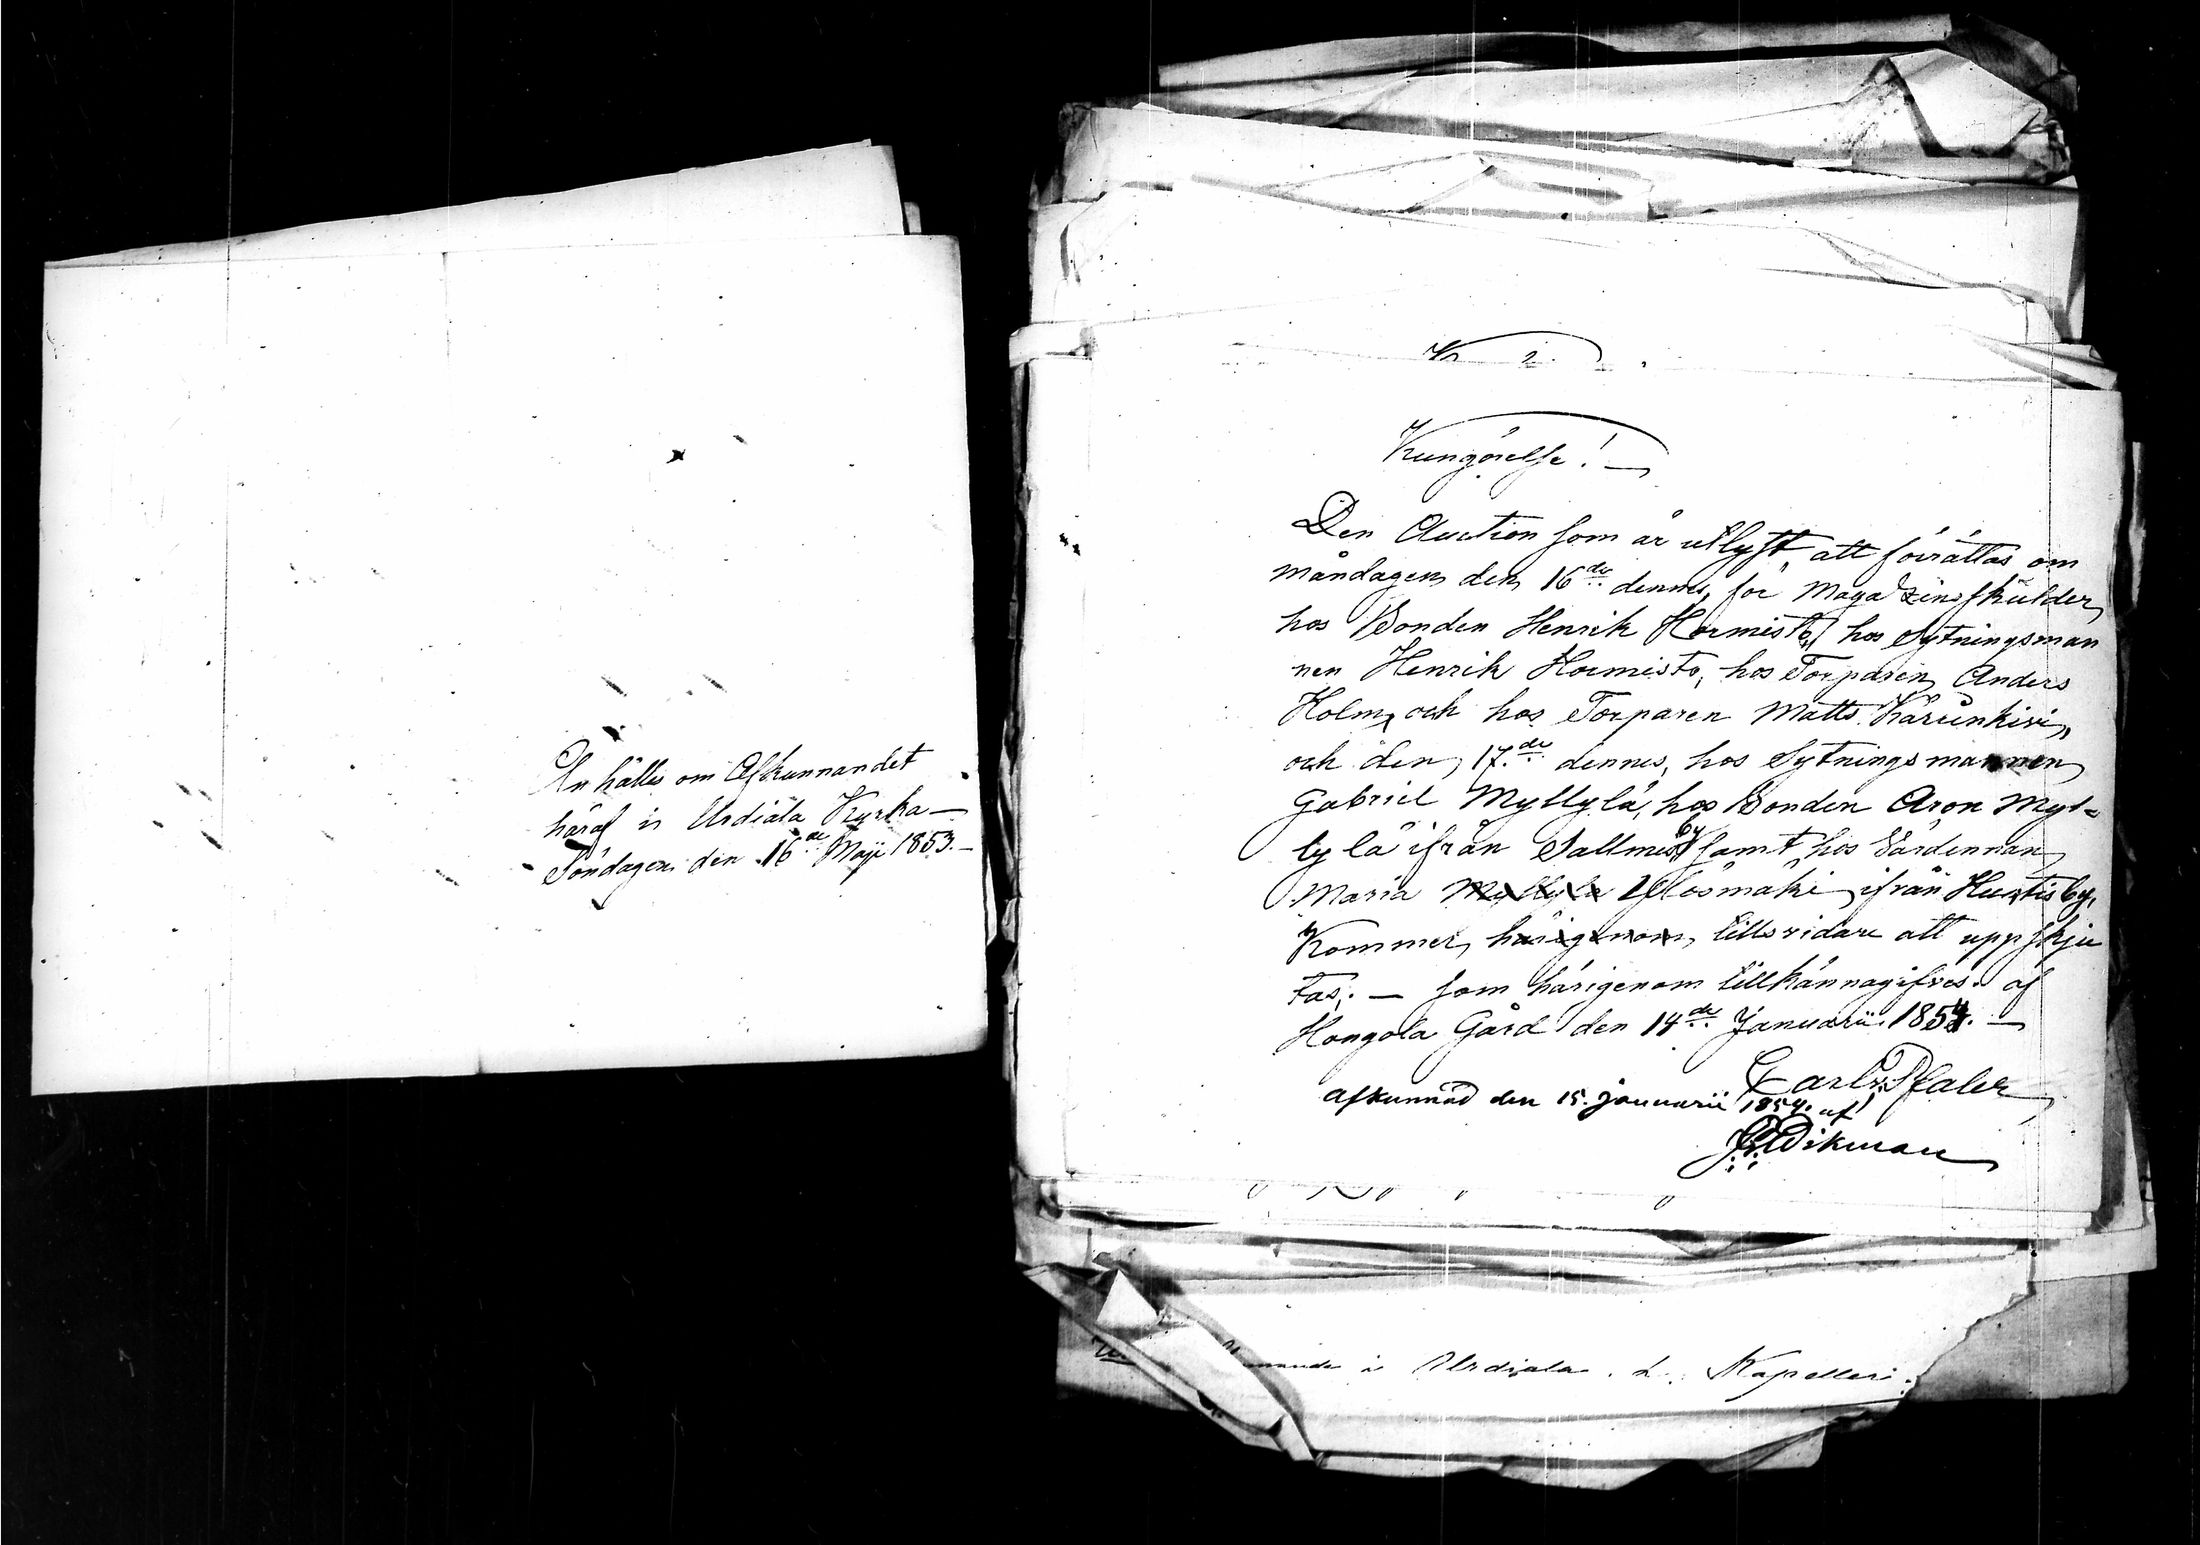 An hålles om Afkunnandet
häraf i Urdiala Kyrka —
Söndagen den 16de Maji 1853. —
Kungörelse! —
Den Auction som är utlyst, att förrättas om
måndagen den 16de dennes, för Magazins skulder,
hos Bonden Henrik Hormisto, hos Sytningsman
nen Henrik Hormisto, hos Torparen Anders
Holm, och hos Torparen Matts Karünkivi,
och den 17de dennes, hos Sytningsmannen
Gabriel Myllylä, hos Bonden Aron Myl=
lylä ifrån Sallmis by samt hos Värdinnan
Maria Myllylä Ylösmäki ifrån Hurtis by,
Kommer härigenom tillsvidare att uppskju
tas; — som härigenom tillkännagifves. af
Hongola Gård den 14de Januarii 1854. —
Carl v. Pfaler
afkunnad den 15. januarii 1854. af
Wikman
i Urdiala Kapelleri.